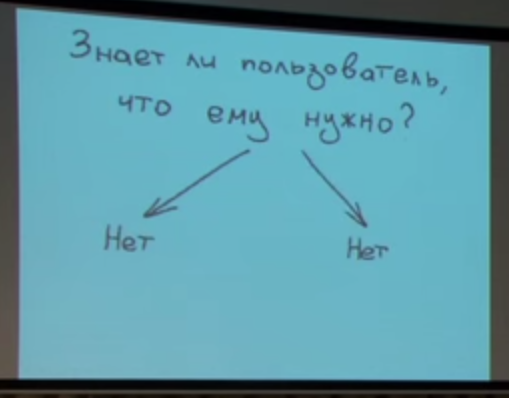 Знает ли пользователь,
что ему нужно?
Нет
Нет